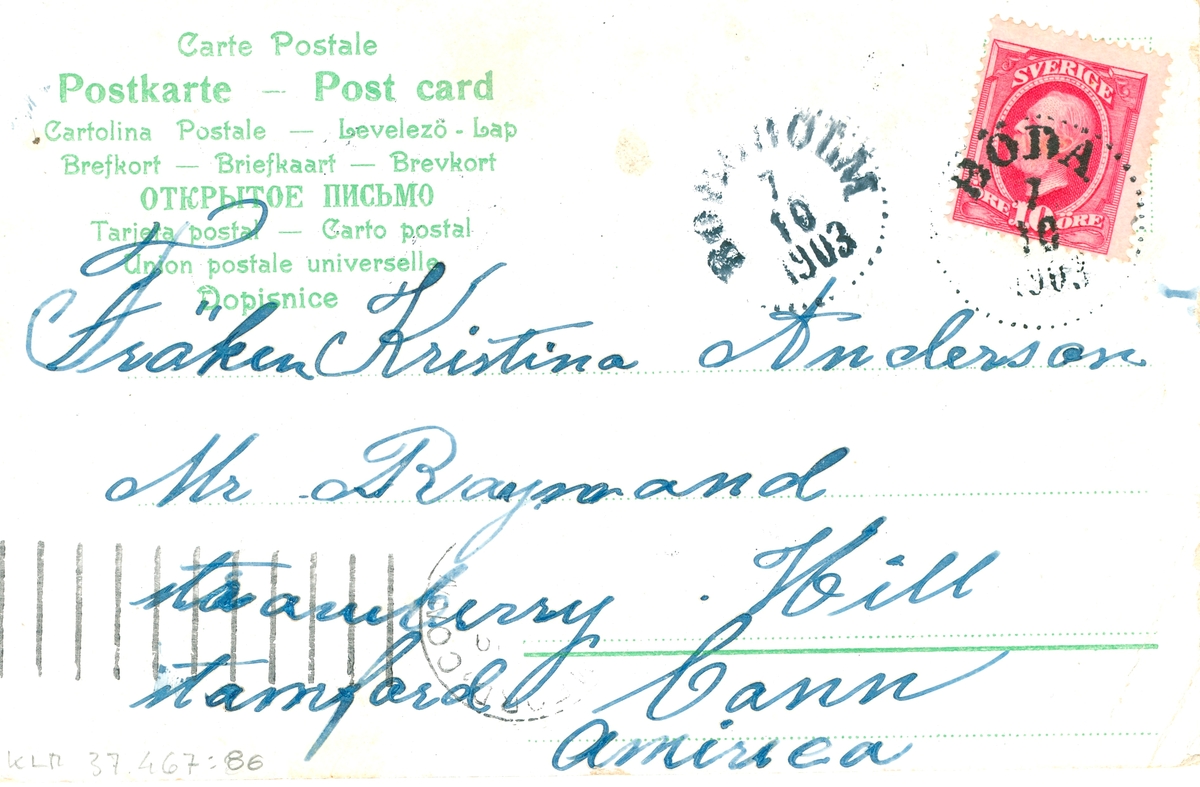 Carte Postale
Postkarte — Post card
Cartolina Postale — Levelező - Lap
Brefkort — Briefkaart — Brevkort
ОТКРЫТОЕ ПИСЬМО
Tarjeta postal — Carto postal
Union postale universelle
Dopisnice
SVERIGE
10 ÖRE
BÖDA
1
10
1903
BORGHOLM
1
10
1903
Fröken Kristina Anderson
Mr Raymand
strawberry Hill
stamford Conn
Amirica
KLM 37.467:86